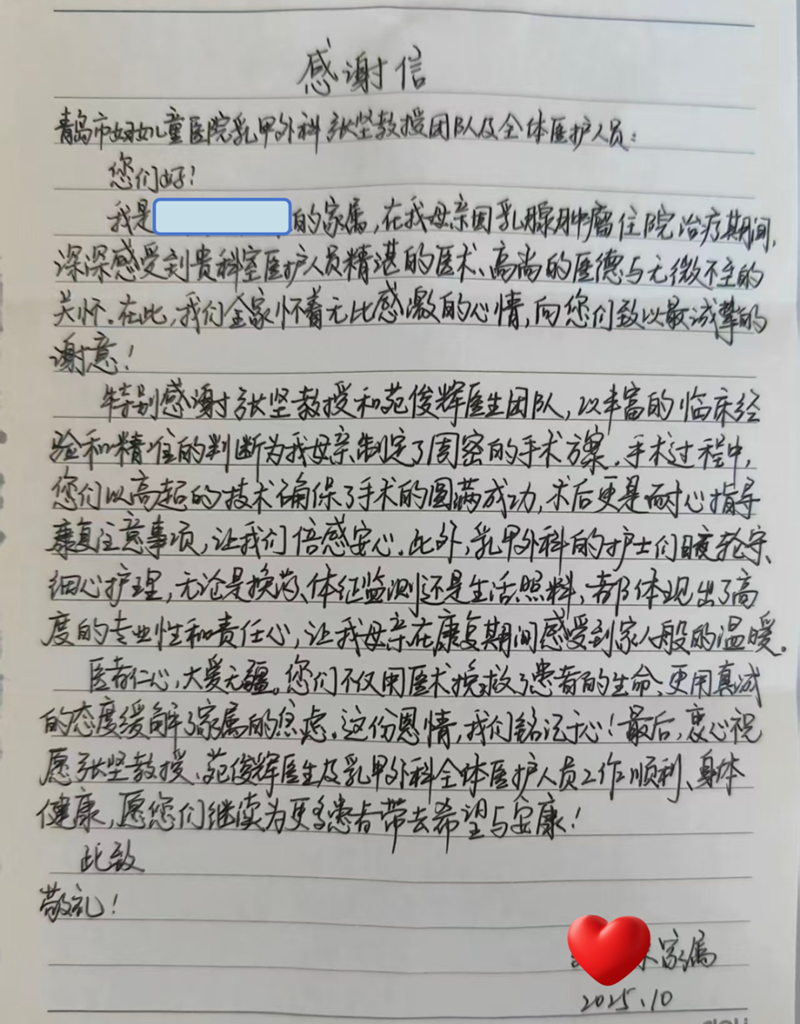 感谢信
青岛市妇女儿童医院乳甲外科张坚教授团队及全体医护人员：
您们好！
我是的家属，在我母亲因乳腺肿瘤住院治疗期间，
深深感受到贵科室医护人员精湛的医术、高尚的医德与无微不至的
关怀．在此，我们全家怀着无比感激的心情，向您们致以最诚挚的
谢意！
特别感谢张坚教授和苑俊辉医生团队，以丰富的临床经
验和精准的判断为我母亲制定了周密的手术方案．手术过程中，
您们以高超的技术确保了手术的圆满成功，术后更是耐心指导
康复注意事项，让我们倍感安心．此外，乳甲外科的护士们日夜轮守、
细心护理，无论是换药、体征监测还是生活照料，都体现出了高
度的专业性和责任心，让我母亲在康复期间感受到家人般的温暖．
医者仁心，大爱无疆。您们不仅用医术挽救了患者的生命、更用真诚
的态度缓解了家属的焦虑．这份恩情，我们铭记于心！最后，衷心祝
愿张坚教授、苑俊辉医生及乳甲外科全体医护人员工作顺利、身体
健康，愿您们继续为更多患者带去希望与安康！
此致
敬礼！
家属
2025.10